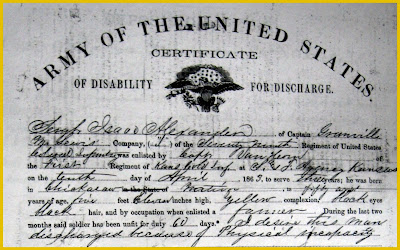 ARMY OF THE UNITED STATES.
CERTIFICATE
OF DISABILITY FOR DISCHARGE.
Isaac Alexander of Captain Granville
Lewis Company, ( ) of the Seventy ninth Regiment of United States
Colored Infantry was enlisted by Capt of
the First Regiment of Kans Cold Inf at Kansas
on the tenth day of April 1863, to serve Three years; he was born
in Chickasaw in the State of Nation, is fifty
years of age, five feet Eleven inches high, Yellow complexion, Dark eyes
black hair, and by occupation when enlisted a farmer During the last two
months said soldier has been unfit for duty 60 days. desire this man
discharged because of Physical incapacity